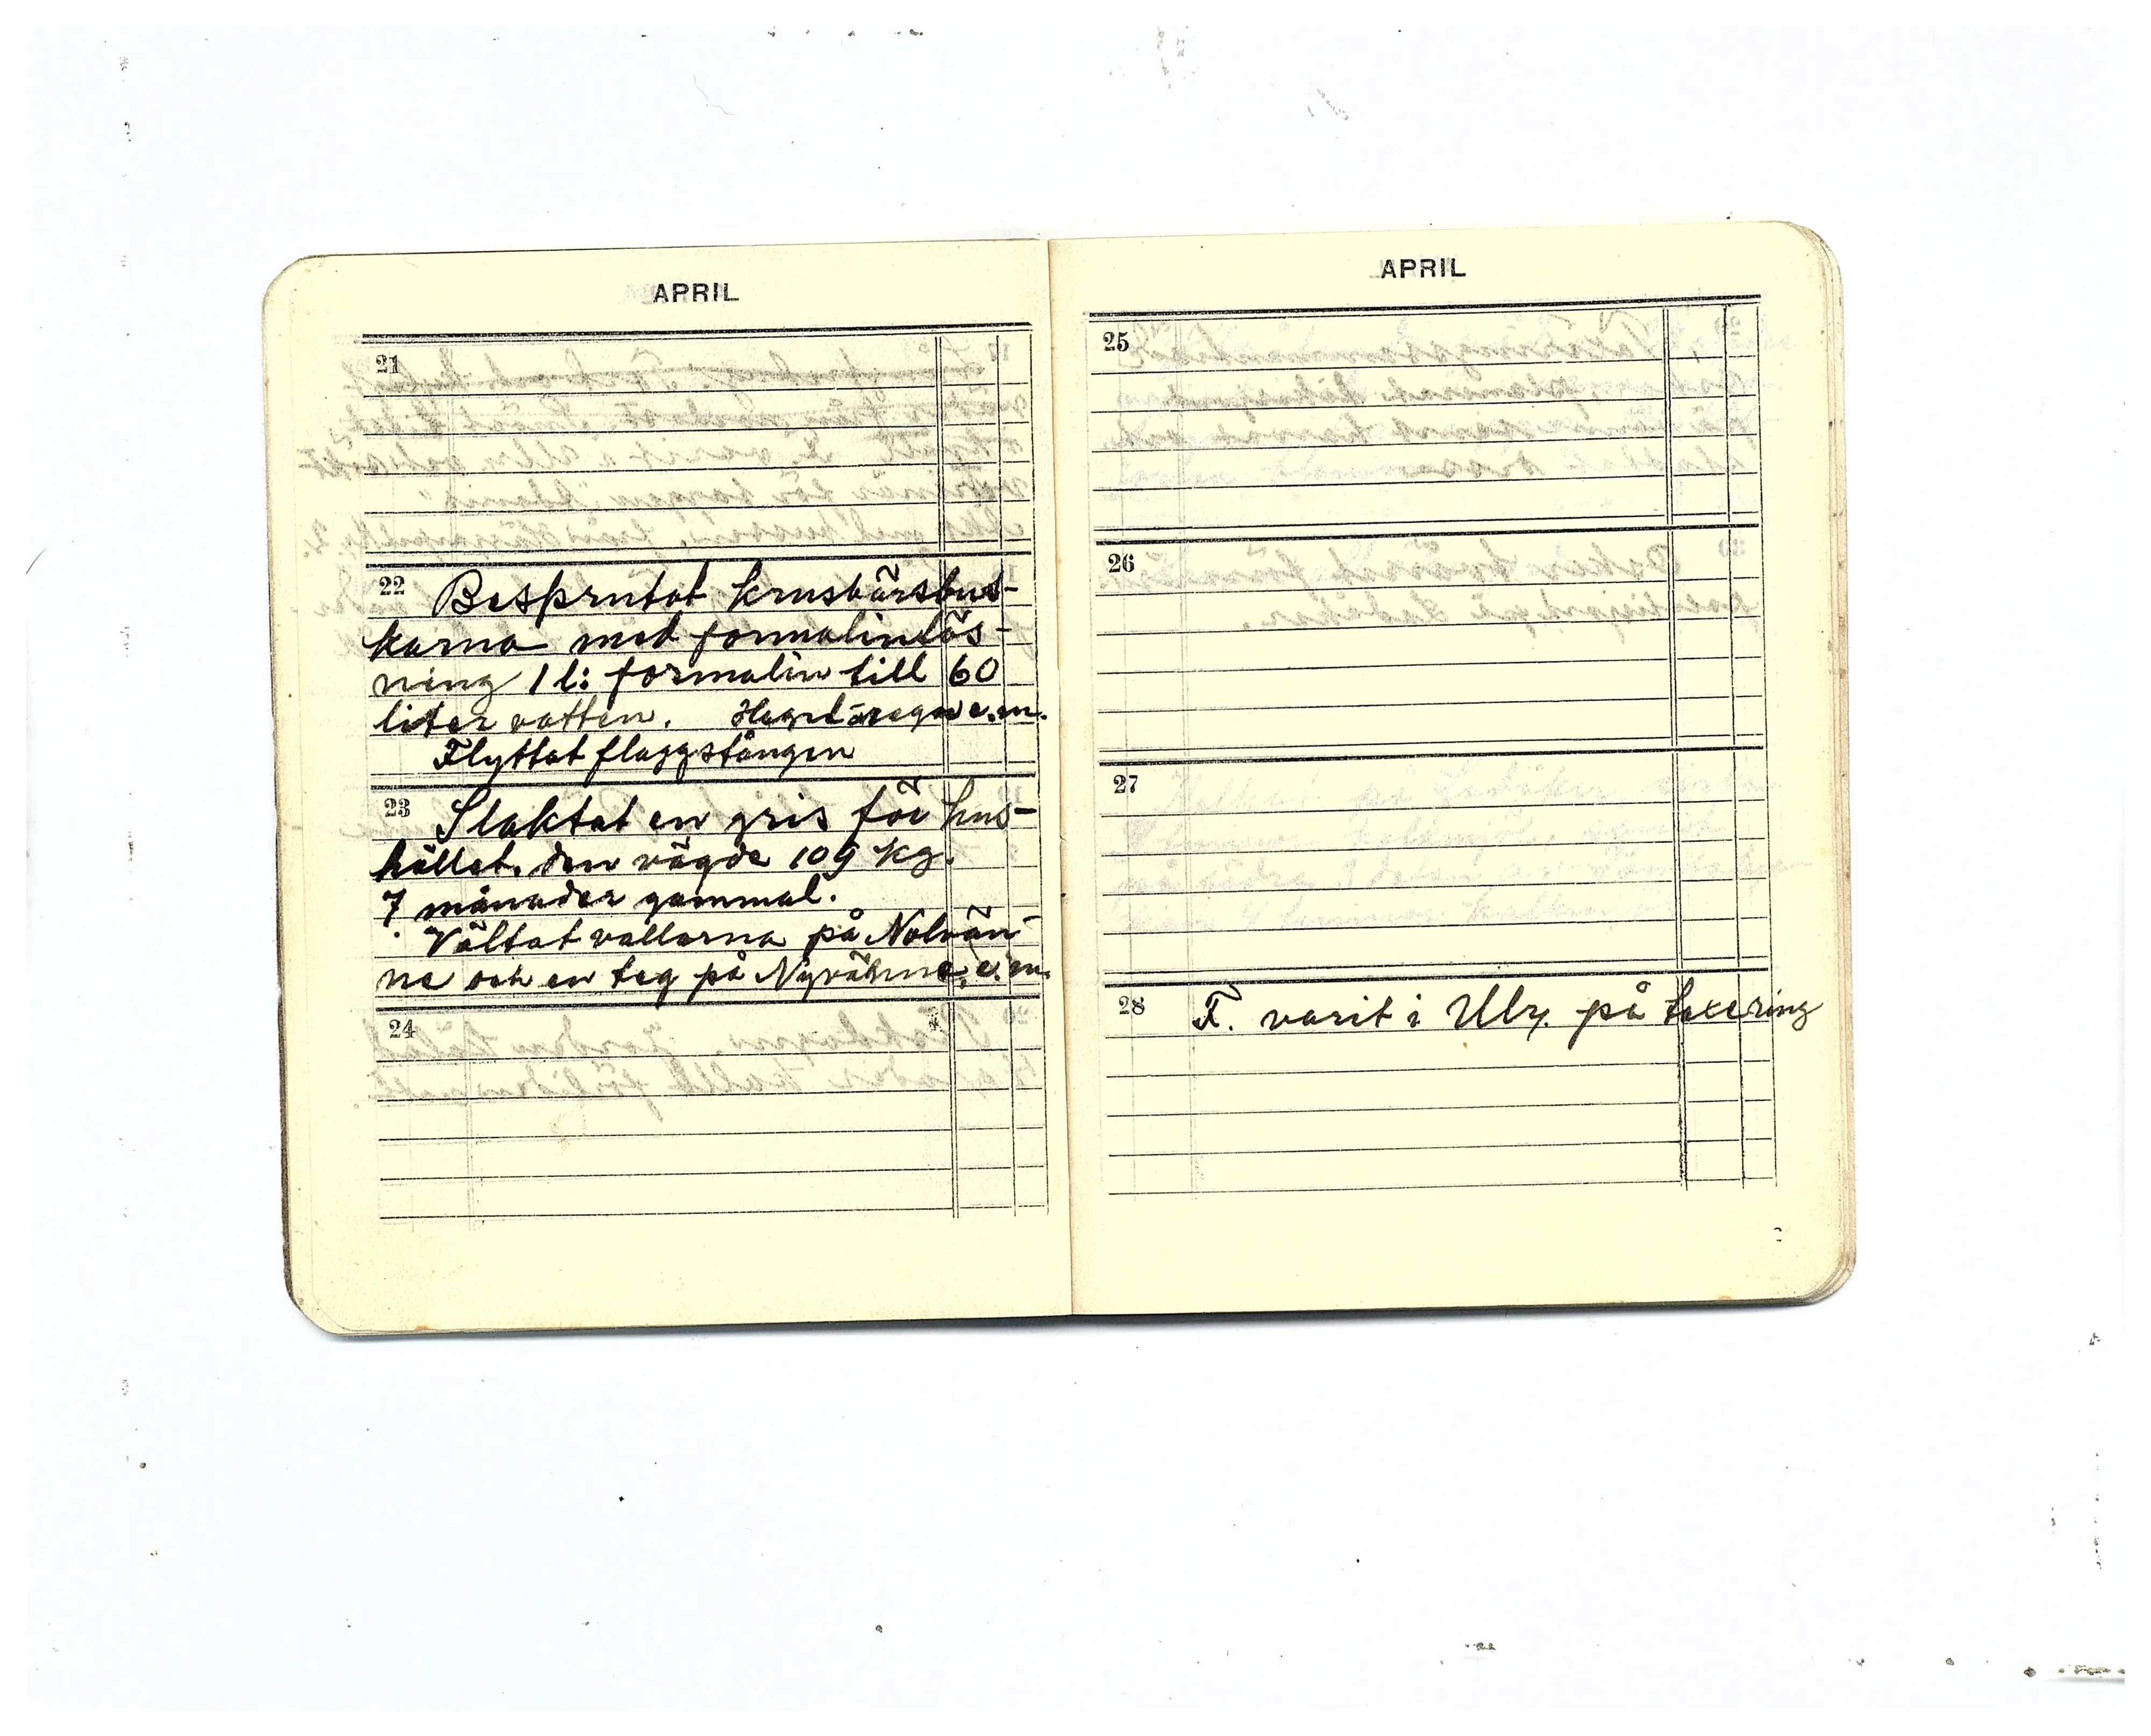 APRIL
21
22 Besprutat krusbärsbus-
karna med formalinlös-
ning 1 l: formalin till 60
liter vatten. Hagel o regn e.m.
Flyttat flaggstången
23 Slaktat en gris för hus-
hållet. den vägde 109 kg.
7 månader gammal.
Vältat vallarna på Nolvän-
ne och en teg på e.m.
24
APRIL
25
26
27
28 F. varit i Ulr. på taxering